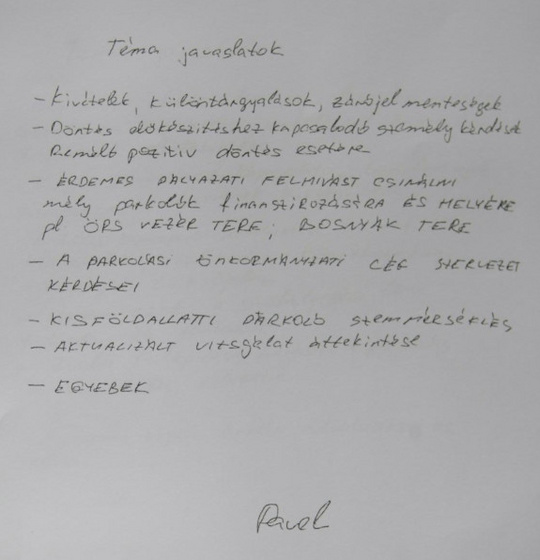 Téma javaslatok
- Kivételek, különtárgyalások, zárójel mentességek
- Döntés előkészítéshez kapcsolodó személy kérdések
Remélt pozitiv döntés esetére
- ÉRDEMES PÁLYÁZATI FELHIVÁST CSINÁLNI
mély parkolók finanszirozására ÉS HELYÉRE
pl ÖRS VEZÉR TERE; BOSNYÁK TERE
- A PARKOLÁSI ÖNKORMÁNYZATI CÉG SZERVEZET
KÉRDÉSEI
- KISFÖLDALLATTI PARKOLÓ
- AKTUALIZÁLT vizsgálat áttekintése
- EGYEBEK
Pavel